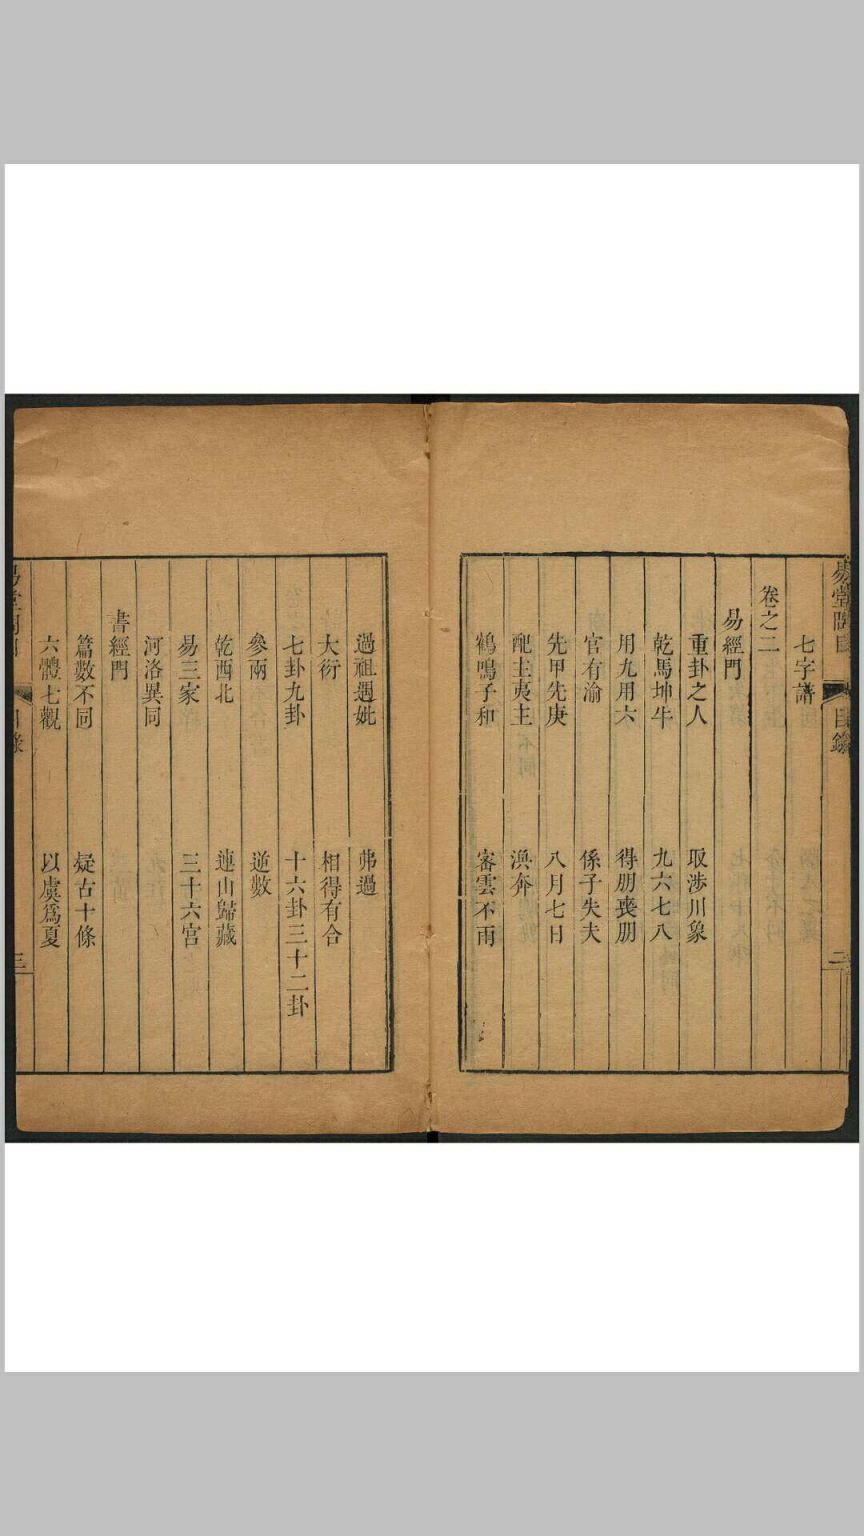 七字譜
卷之二
易經門
重卦之人　取涉川象
乾馬坤牛　九六七八
用九用六　得朋喪朋
官有渝　係子失夫
先甲先庚　八月七日
配主夷主　渙奔
鶴鳴子和　密雲不雨
過祖遇妣　弗過
大衍　相得有合
七卦九卦　十六卦三十二卦
參兩　逆數
乾西北　連山歸藏
易三家　三十六宮
河洛異同
書經門
篇數不同　疑古十條
六體七觀　以虞爲夏
目錄
三